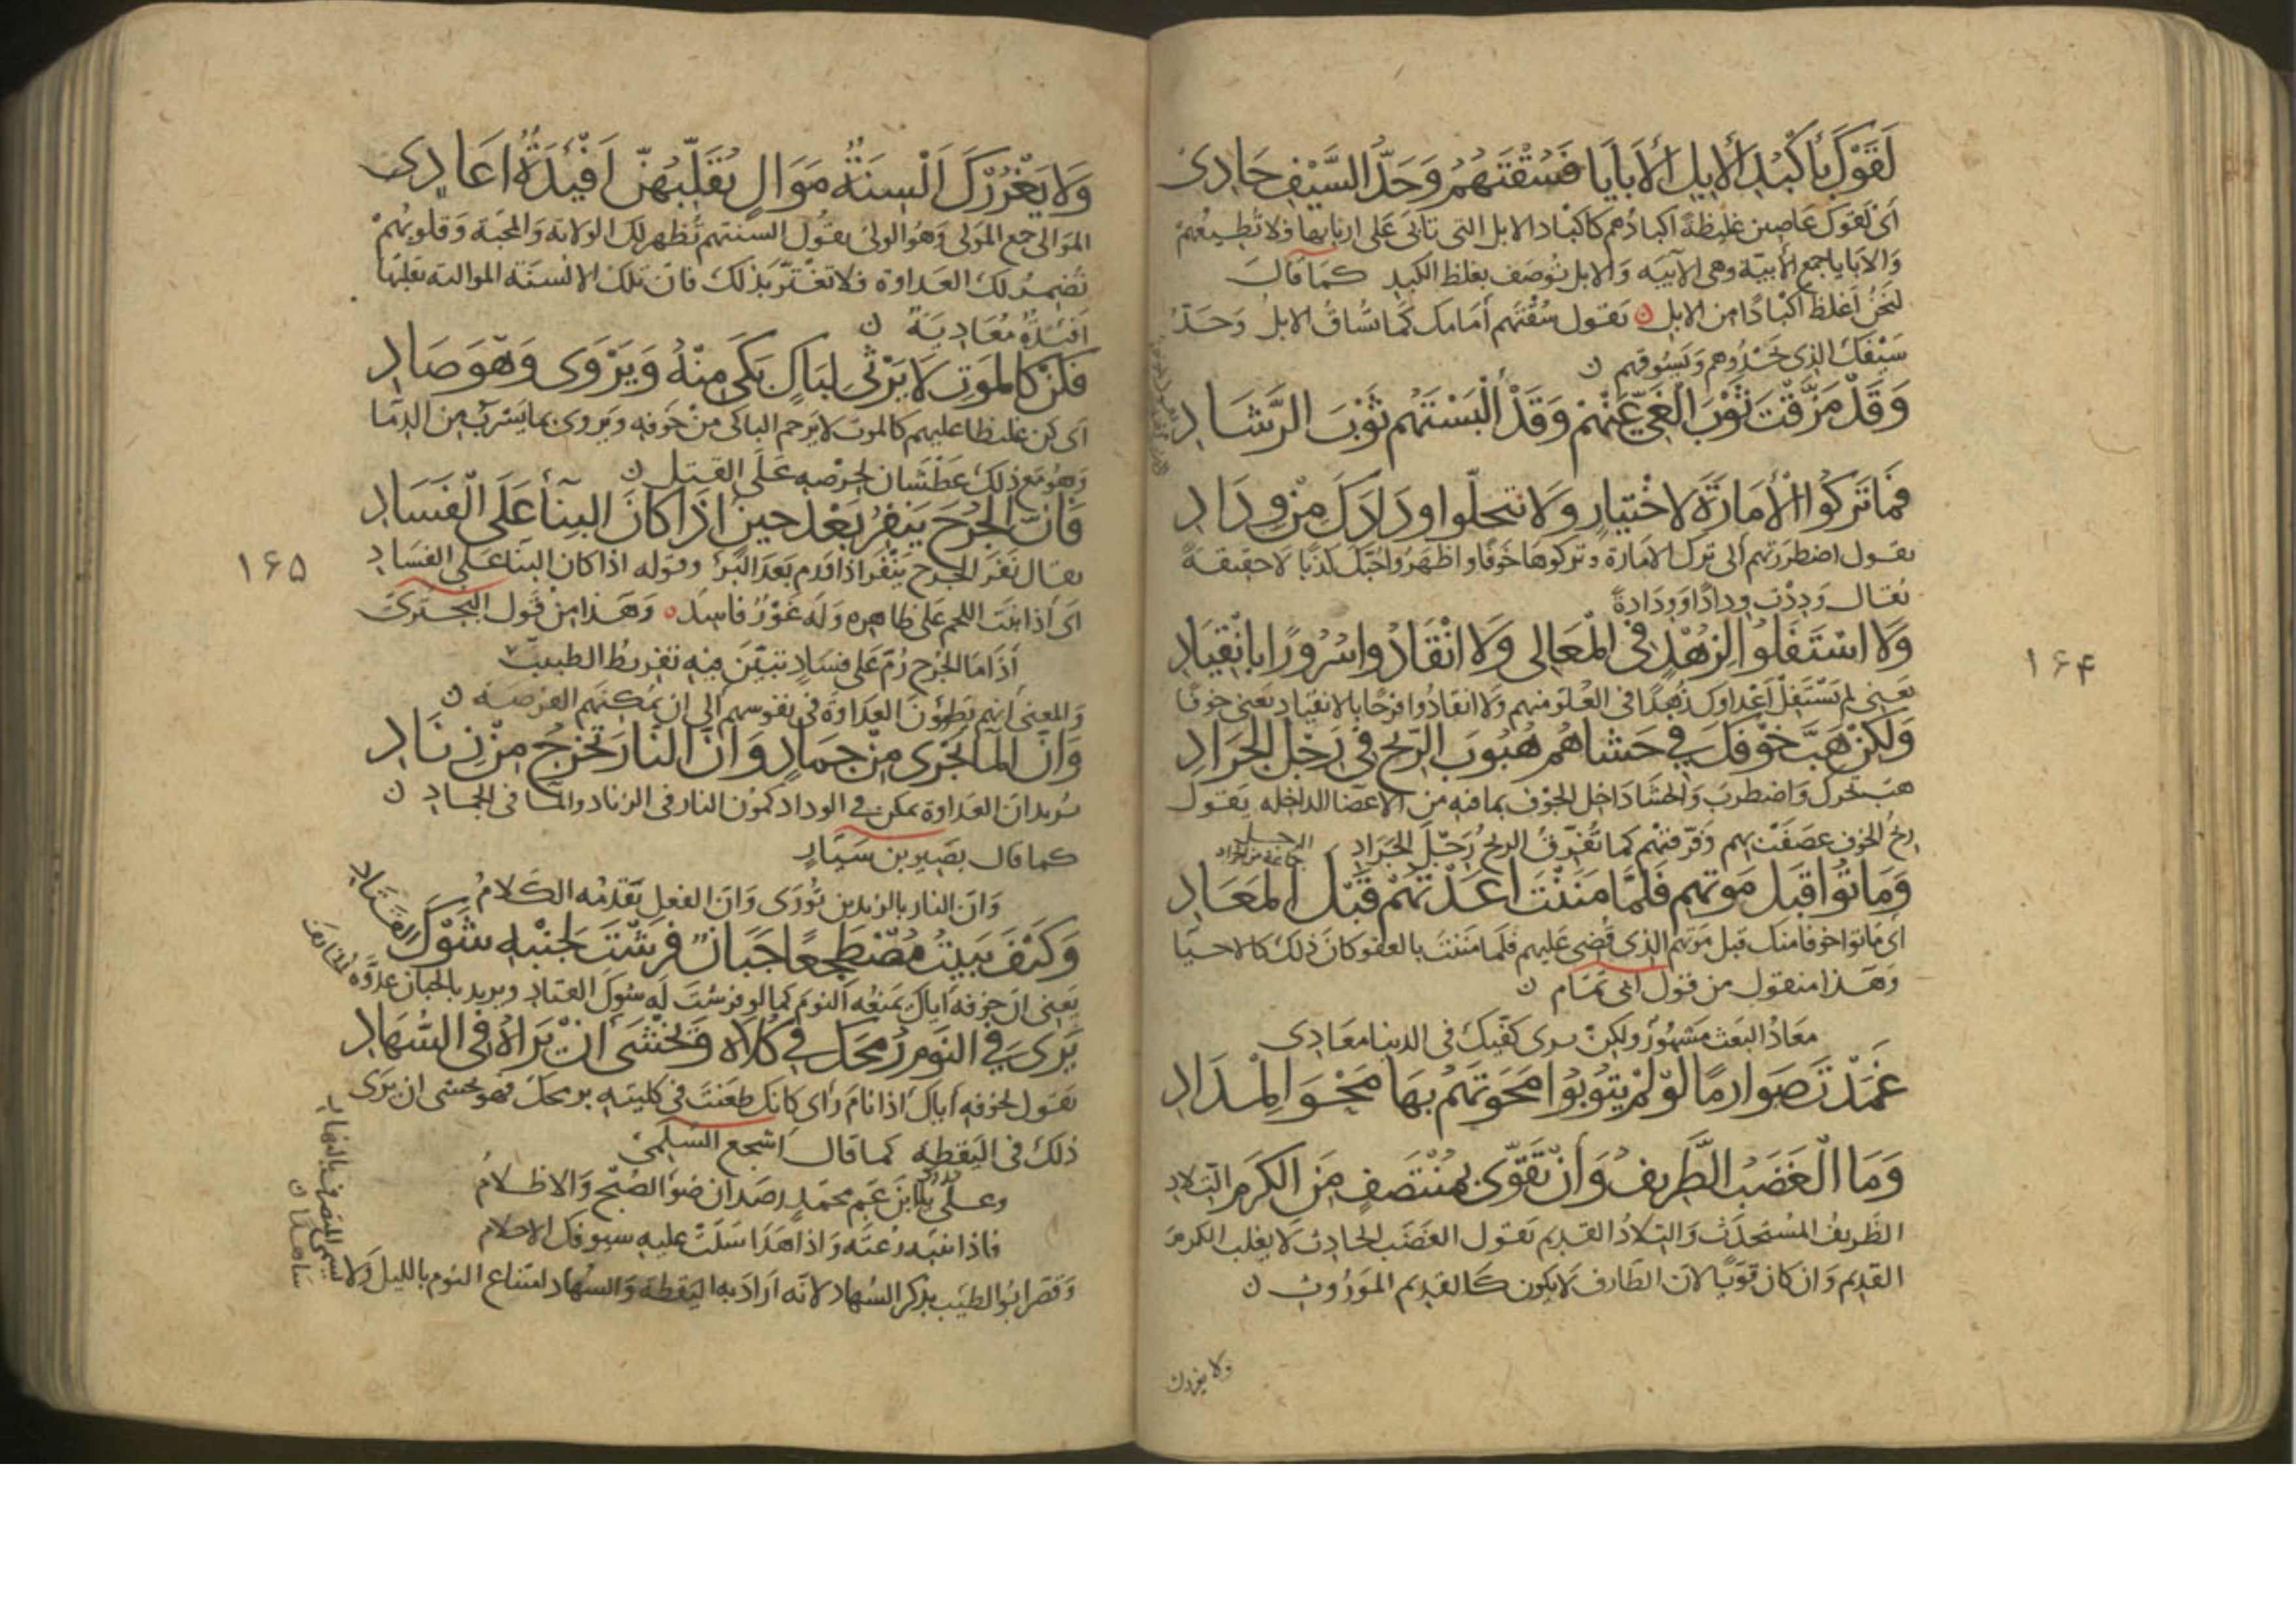 لَقَوْكَ بِأَكْبُدِ الْإِبِلِ الْأَبَايَا فَسُقْتَهُمْ وَحَدُّ السَّيْفِ حَادِي
أى لقوك عاصين غليظة أكبادهم كأكباد الابل التى تأبى على اربابها ولا تطيعهم
والابايا جمع الأبيّة وهى الآبيه والابل توصف بغلظ الكبد كما قال
لنحن أغلظ أكبادا من الابل ن تقول سقتهم أمامك كما تساق الابل وحدّ
سيفك الذى يحدوهم ويسوقهم ن
وَقَدْ مَزَّقْتَ ثَوْبَ الْغَيِّ عَنْهُمْ وَقَدْ أَلْبَسْتَهُمْ ثَوْبَ الرَّشَادِ
فَمَا تَرَكُوا الْأَمَارَةَ لِاخْتِيَارٍ وَلَا انتحلوا ودادك من وداد
يقول اضطررتهم الى ترك الامارة وتركوها خوفا واظهروا حبّك كذبا لا حقيقة
يقال وددت ودادا وودادة
وَلَا اسْتَفَلُوا لِزُهْدٍ فِي الْمَعَالِي وَلَا انْقَادُوا سُرُورًا بِانْقِيَادِ
يعنى لم يستفل أعداوك زهدا فى العلو منهم ولا انقادوا فرحا بالانقياد يعنى خوفا
وَلَكِنْ هَبَّ خَوْفُكَ فِي حَشَاهُمْ هُبُوبَ الرِّيحِ فِي رِجْلِ الْجَرَادِ
هب تحرك واضطرب والحشا داخل الجوف بما فيه من الاعضا الداخله يقول
ريح الخوف عصفت بهم وفرقتهم كما تفرق الريح رجل الجراد
الرجل
جماعة من الجراد
وَمَاتُوا قَبْلَ مَوْتِهِمْ فَلَمَّا مَنَنْتَ أَعَدْتَهُمْ قَبْلَ الْمَعَادِ
اى ماتوا خوفا منك قبل موتهم الذى قضى عليهم فلما مننت بالعفو كان ذلك كالاحيا
وهذا منقول من قول ابى تمام ن
معاد البعث مشهور ولكن يرى كفيك فى الدنيا معادى
غَمَدْتَ صَوَارِمًا لَوْ لَمْ يَتُوبُوا مَحَوْتَهُمْ بِهَا مَحْوَ الْمِدَادِ
وَمَا الْغَضَبُ الطَّرِيفُ وَإِنْ تَقَوَّى بِمُنْتَصِفٍ مِنَ الْكَرَمِ التِّلَادِ
الطريف المستحدث والتلاد القديم يقول الغضب الحادث لا يغلب الكرم
القديم وان كان قويا لان الطارف لا يكون كالقديم الموروث ن
ولا يغررك
١۶۴
وَلَا يَغْرُرْكَ أَلْسِنَةُ مَوَالٍ تُقَلِّبُهُنَّ أَفْئِدَةُ أَعَادِي
الموالى جمع المولى وهو الولى يقول السنتهم تظهر لك الولاية والمحبة وقلوبهم
تضمر لك العداوة فلا تغترّ بذلك فان تلك الالسنة الموالية تقلبها
افئدة معادية ن
فَكُنْ كَالْمَوْتِ لَا يَرْثِي لِبَاكٍ بَكَى مِنْهُ وَيَرْوَى وَهْوَ صَادِ
اى كن غليظا عليهم كالموت لا يرحم الباكى من خوفه ويروى بما يشرب من الدما
وهو مع ذلك عطشان لحرصه على القتل ن
فَإِنَّ الْجُرْحَ يَنْفِرُ بَعْدَ حِينٍ إِذَا كَانَ الْبِنَاءُ عَلَى الْفَسَادِ
يقال نفر الجرح ينفر اذا ورم بعد البرء وقوله اذا كان البنا على الفساد
اى اذا نبت اللحم على ظاهره وله غور فاسد ٥ وهذا من قول البحترى
اذا ما الجرح رُمّ على فساد تبيّن فيه تفريط الطبيب
والمعنى انهم يطوون العداوة فى نفوسهم الى ان يمكنهم الفرصة ن
وَإِنَّ الْمَا يَجْرِي مِنْ جَمَادٍ وَإِنَّ النَّارَ تَخْرُجُ مِنْ زِنَادِ
يريد ان العداوة تمكن فى الوداد كمون النار فى الزناد والما فى الجماد ن
كما قال نصر بن سيّار
وان النار بالزندين تورى وان الفعل يقدمه الكلام
وَكَيْفَ يَبِيتُ مُضْطَجِعًا جَبَانٌ فَرَشْتَ لِجَنْبِهِ شَوْكَ الْقَتَادِ
يعنى ان خوفه اياك يمنعه النوم كما لو فرشت له شوك القتاد ويريد بالجبان عدوه الخائف
يَرَى فِي النَّوْمِ رُمْحَكَ فِي كُلَاهُ وَيَخْشَى أَنْ يَرَاهُ فِي السُّهَادِ
يقول لخوفه اياك اذا نام راى كانك طعنت فى كليته برمحك فهو يخشى ان يرى
ذلك فى اليقظه كما قال اشجع السلمى
وعلى عدوك يا ابن عم محمد رصدان ضوء الصبح والاظلام
فاذا تنبه رعته واذا هدا سلت عليه سيوفك الاحلام
وقصر ابو الطيب بذكر السهاد لانه اراد به اليقظة والسهاد امتناع النوم بالليل ولا
يسمى المتصرف بالنهار
ساهدا ن
١۶۵